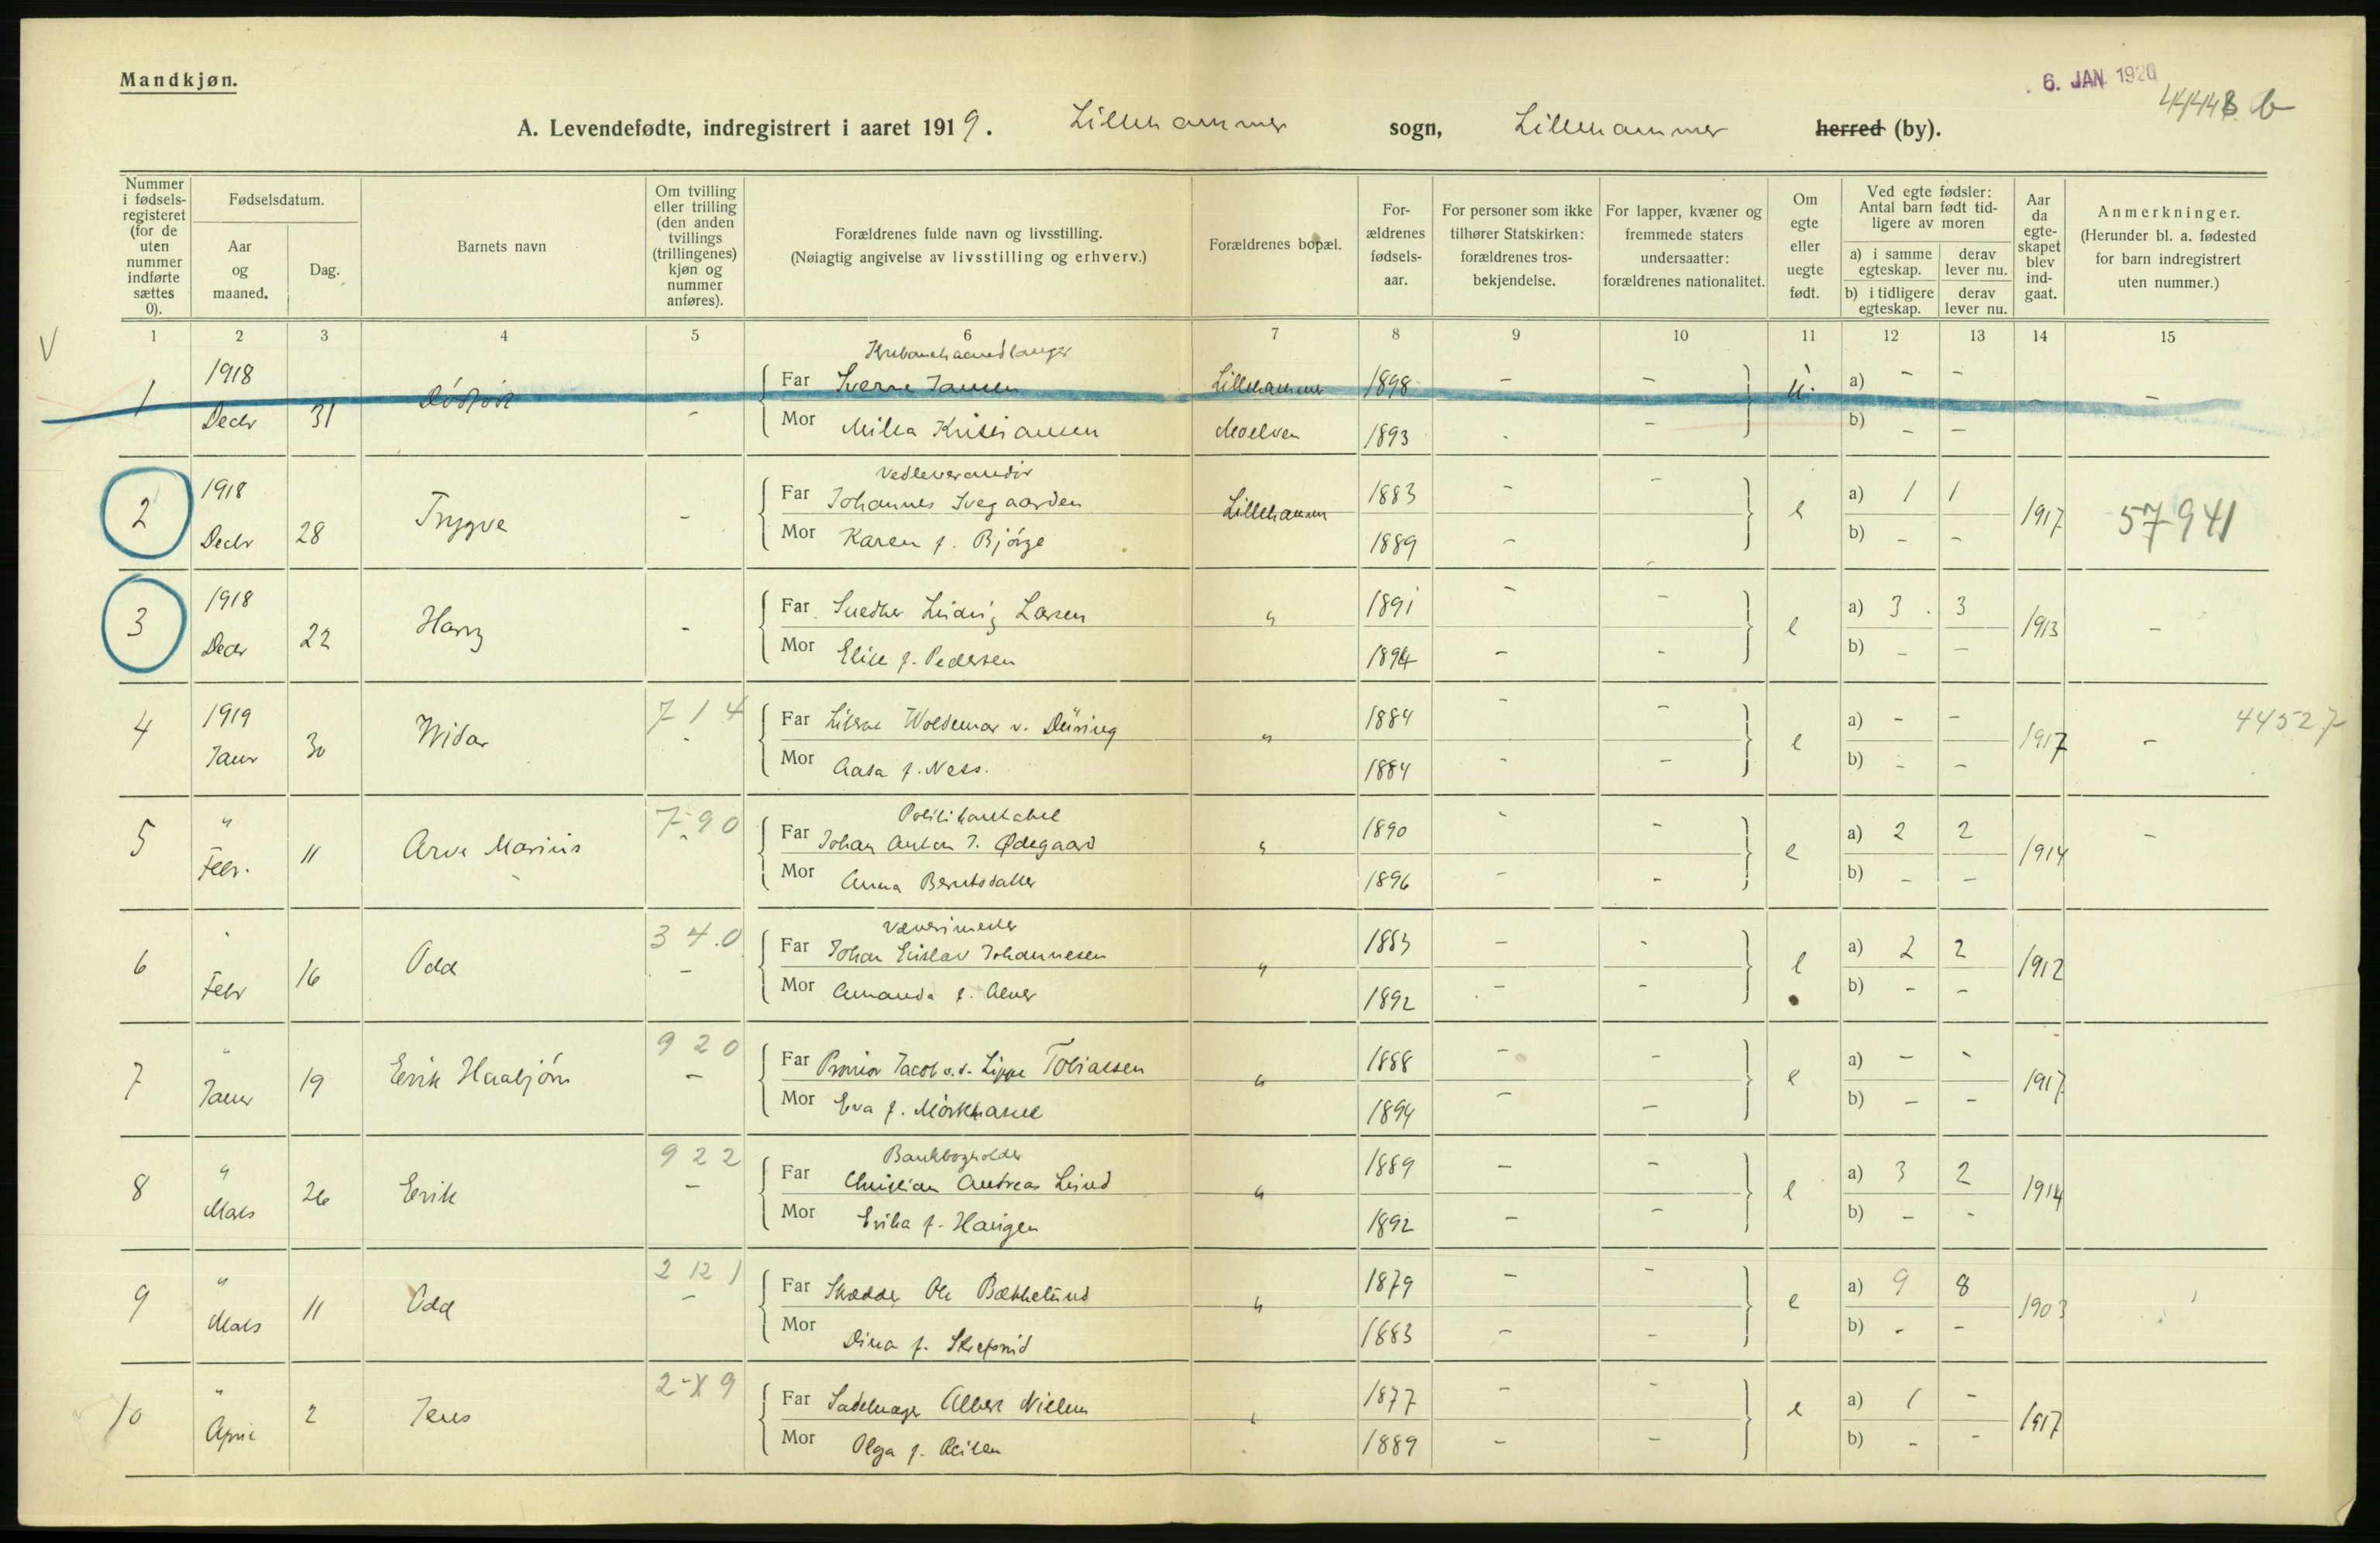 Mandkjøn.
6. JAN. 1920
A. Levendefødte, indregistrert i aaret 1919. Lillehammer sogn, Lillehammer herred (by).
Nummer i fødsels-registeret (for de uten nummer indførte sættes 0).
Fødselsdatum.
Aar og maaned.
Dag.
Barnets navn
Om tvilling eller trilling (den anden tvillings (trillingenes) kjøn og nummer anføres).
Forældrenes fulde navn og livsstilling.
(Nøiagtig angivelse av livsstilling og erhverv.)
Forældrenes bopæl.
For-ældrenes fødsels-aar.
For personer som ikke tilhører Statskirken: forældrenes tros-bekjendelse.
For lapper, kvæner og fremmede staters undersaatter: forældrenes nationalitet.
Om egte eller uegte født.
Ved egte fødsler: Antal barn født tid-ligere av moren
a) i samme egteskap.
derav lever nu.
b) i tidligere egteskap.
derav lever nu.
Aar da egte-skapet blev ind-gaat.
Anmerkninger.
(Herunder bl. a. fødested for barn indregistrert uten nummer.)
1 2 3 4 5 6 7 8 9 10 11 12 13 14 15
1 1918 Decbr 31 -
Far Sverre Jansen Lillehammer 1898 - - u. a) - -
Mor Milla Kristiansen Moelven 1893 - - b) - -
2 1918 Decbr 28 Trygve -
Vedleverandør
Far Johannes Svegaarden Lillehammer 1883 - - e a) 1 1 1917 57941
Mor Karen f. Bjørge 1889 - - b) - -
3 1918 Decbr 22 Harry -
Far Snedker Ludvig Larsen " 1891 - - e a) 3 3 1913 -
Mor Elise f. Pedersen 1894 - - b) - -
4 1919 Januar 30 Widar 7 1 4 -
Far Woldemar v. Düring " 1884 - - e a) - - 1917 - 44527
Mor Aasa f. Ness. 1884 - - b) - -
5 " Febr. 11 Arve Marius 7-90
Politikonstabel
Far Johan Anton J. Ødegaard " 1890 - - e a) 2 2 1914 -
Mor Anna Berntsdatter 1896 - - b) - -
6 " Febr 16 Odd 3 4.0 -
Vævermester
Far Johan Johannesen " 1883 - - e a) 2 2 1912
Mor Amanda f. 1892 - - b) - -
7 " Januar 19 Erik Haabjørn 9 20 -
Far Jacob v.d. Lippe Tobiassen " 1888 - - e a) - - 1917
Mor Eva f. 1894 - - b) - -
8 " Mars 26 Erik 9 22 -
Bankbogholder
Far Christian Andreas Lund " 1889 - - e a) 3 2 1914
Mor Erika f. Haugen 1892 - - b) - -
9 " Mars 11 Odd 2 12 1 -
Far Skrædder Ole Bækkelund " 1879 - - e a) 9 8 1903
Mor Dina f. Skrefsrud 1883 - - b) - -
10 " April 2 Jens
Far Sadelmager Albert Nielsen " 1877 - - e a) 1 - 1917
Mor Olga f. 1889 - - b) - -